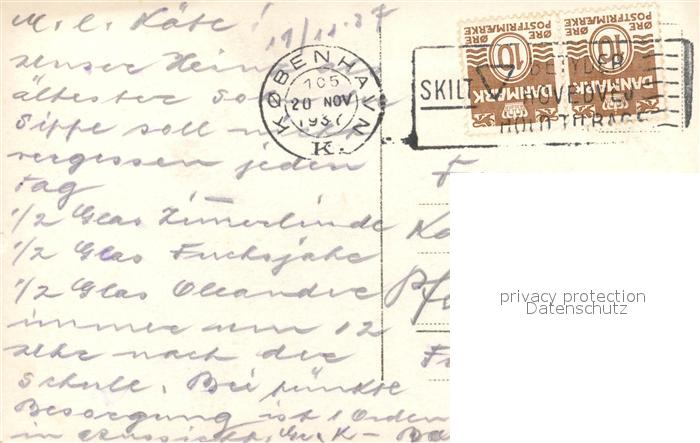 M. l. Käte!
19/11.37
unser Heim
ältester So
Sippe soll nicht
vergessen jeden
Tag
1/2 Glas Zimmerlinde
1/2 Glas Fuchsjahr
1/2 Glas Oleander
immer um 12
Uhr nach der
Schule. Bei pünktl
Besorgung ist 1 Orden
in Aussicht,
KØBENHAVN
20 NOV
1937
K.
ØRE
POSTFRIMÆRKE
10
DANMARK
ØRE
POSTFRIMÆRKE
10
DANMARK
SKILT
BETYDER
HOVEDVEJ
HOLD TILBAGE
F
privacy protection
Datenschutz